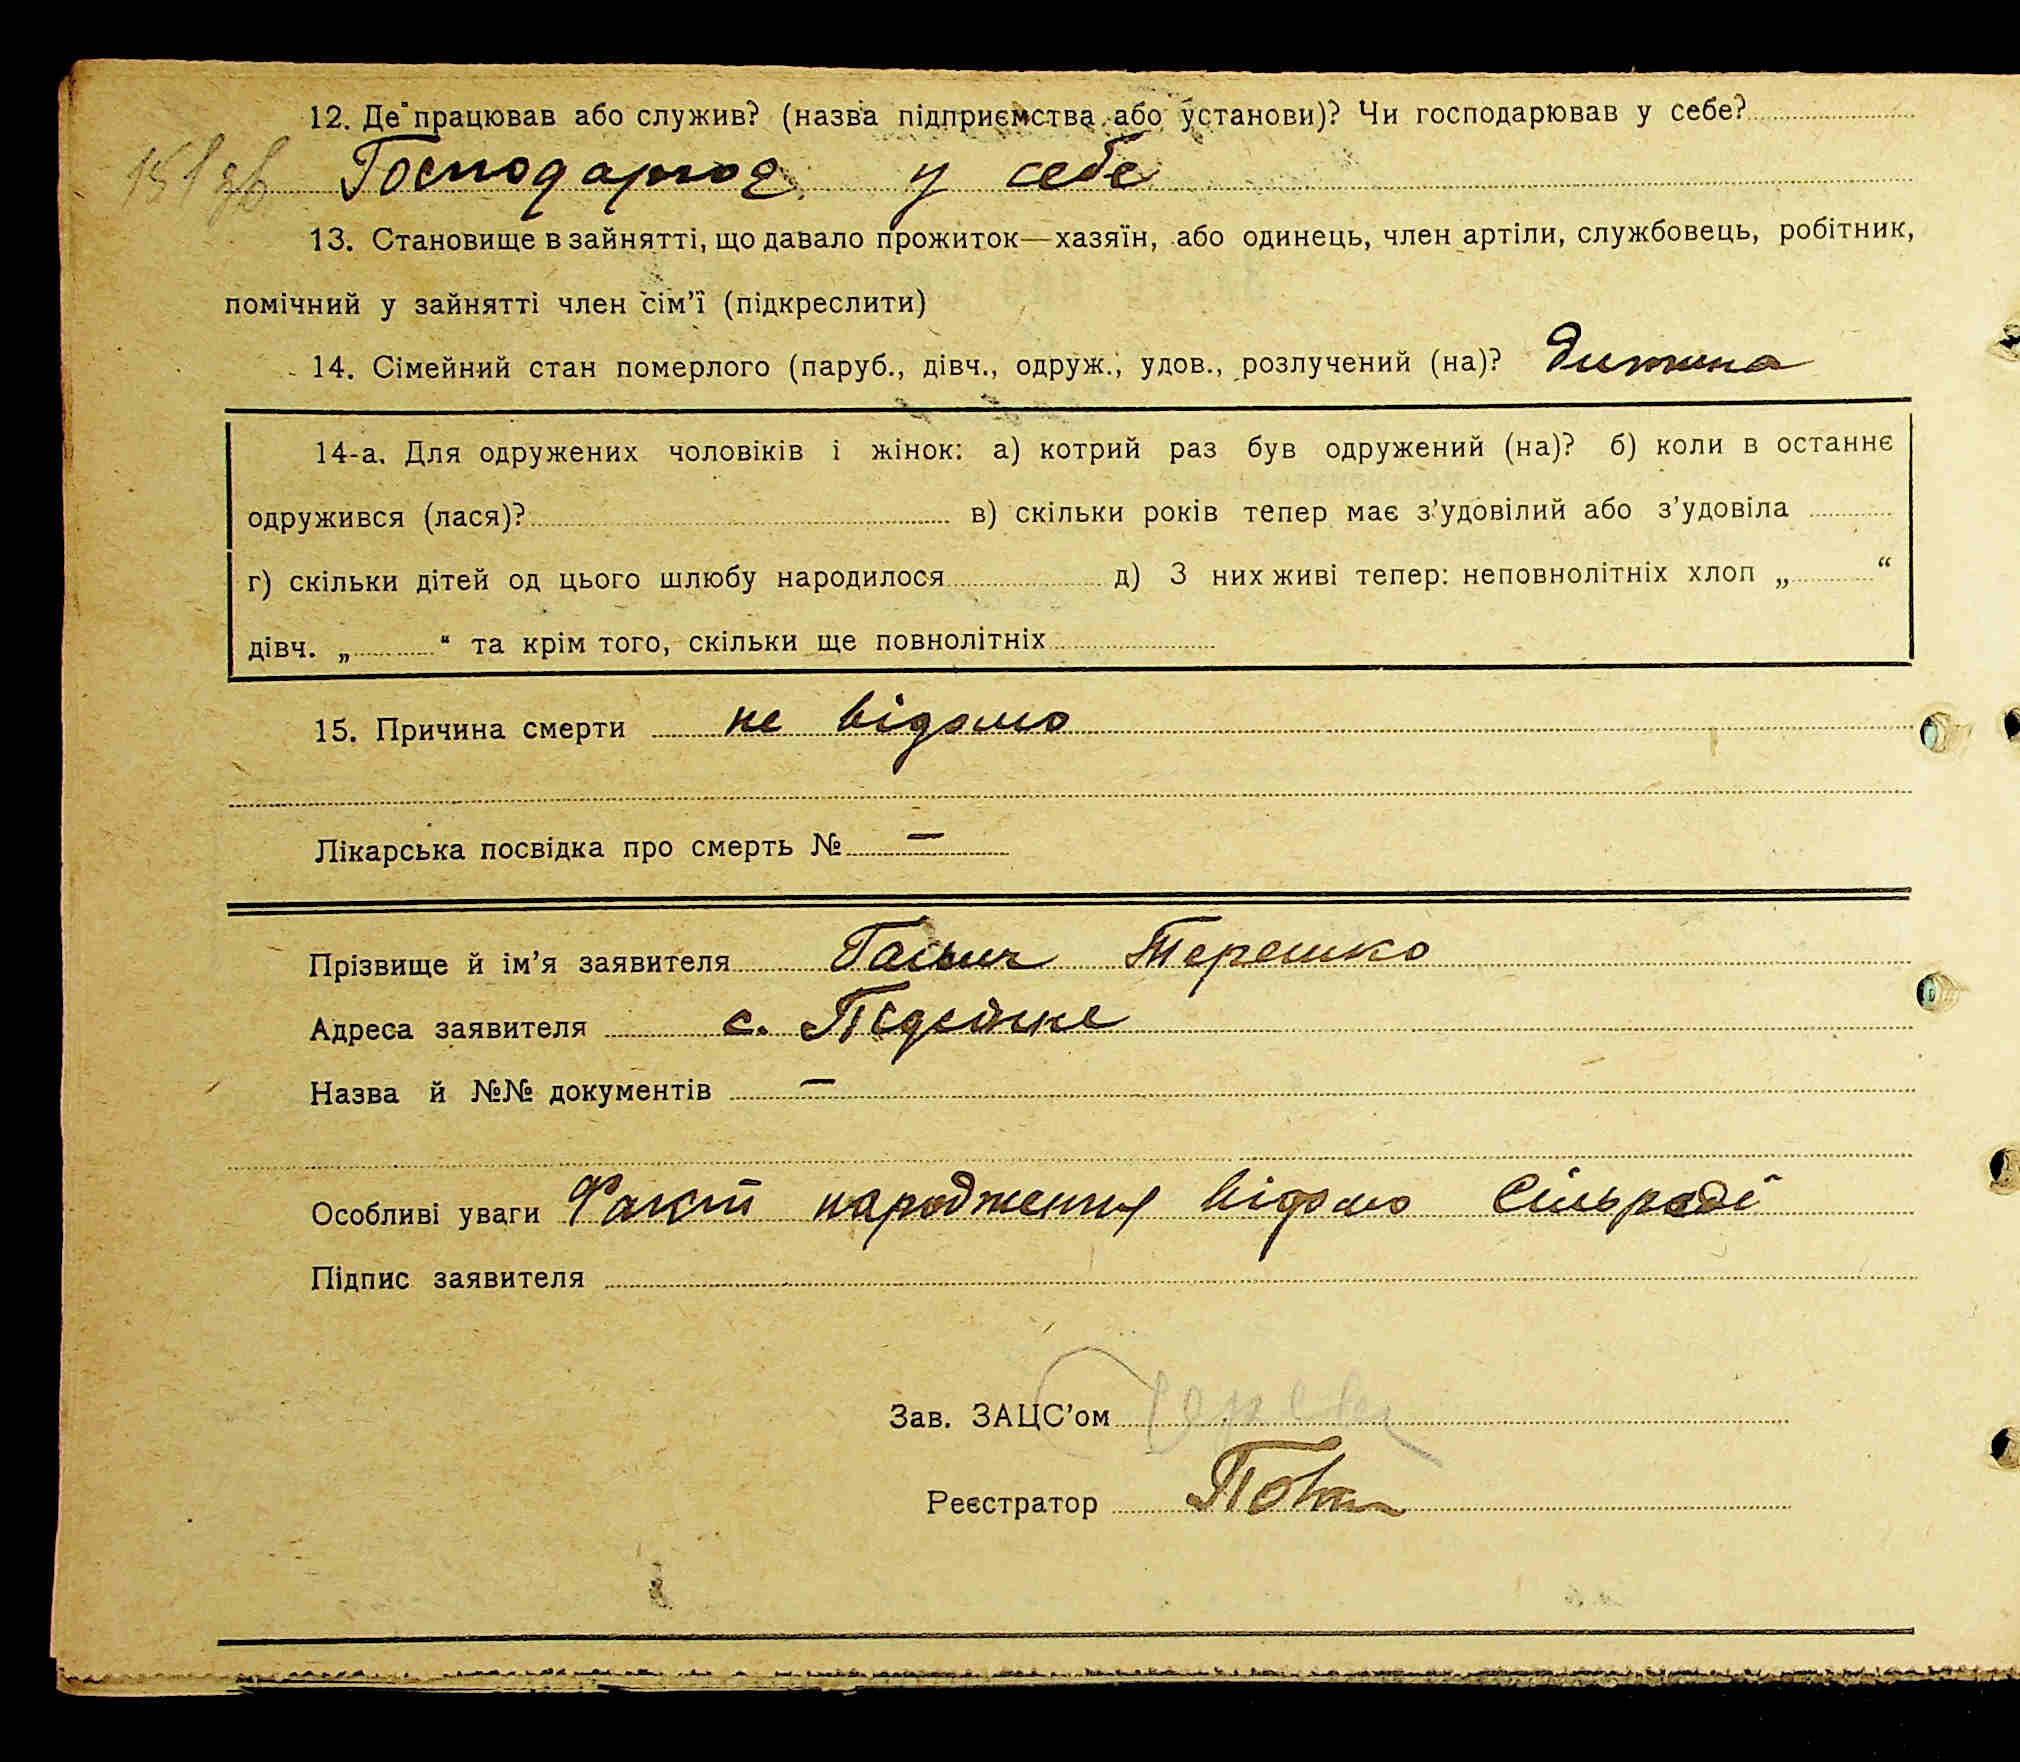 12. Де працював або служив? (назва підприємства або установи)? Чи господарював у себе?
151 зв Господарює у себе
13. Становище в зайнятті, що давало прожиток—хазяїн, або одинець, член артіли, службовець, робітник,
помічний у зайнятті член сім'ї (підкреслити)
14. Сімейний стан померлого (паруб., дівч., одруж., удов., розлучений (на)? Дитина
14-а. Для одружених чоловіків і жінок: а) котрий раз був одружений (на)? б) коли в останнє
одружився (лася)? в) скільки років тепер має з'удовілий або з'удовіла
г) скільки дітей од цього шлюбу народилося д) З них живі тепер: неповнолітніх хлоп „ “
дівч. „ “ та крім того, скільки ще повнолітніх
15. Причина смерти не відомо
Лікарська посвідка про смерть № —
Прізвище й ім'я заявителя Терешко
Адреса заявителя с.
Назва й №№ документів —
Особливі уваги Факт народження відомо сільраді
Підпис заявителя
Зав. ЗАЦС'ом
Реєстратор